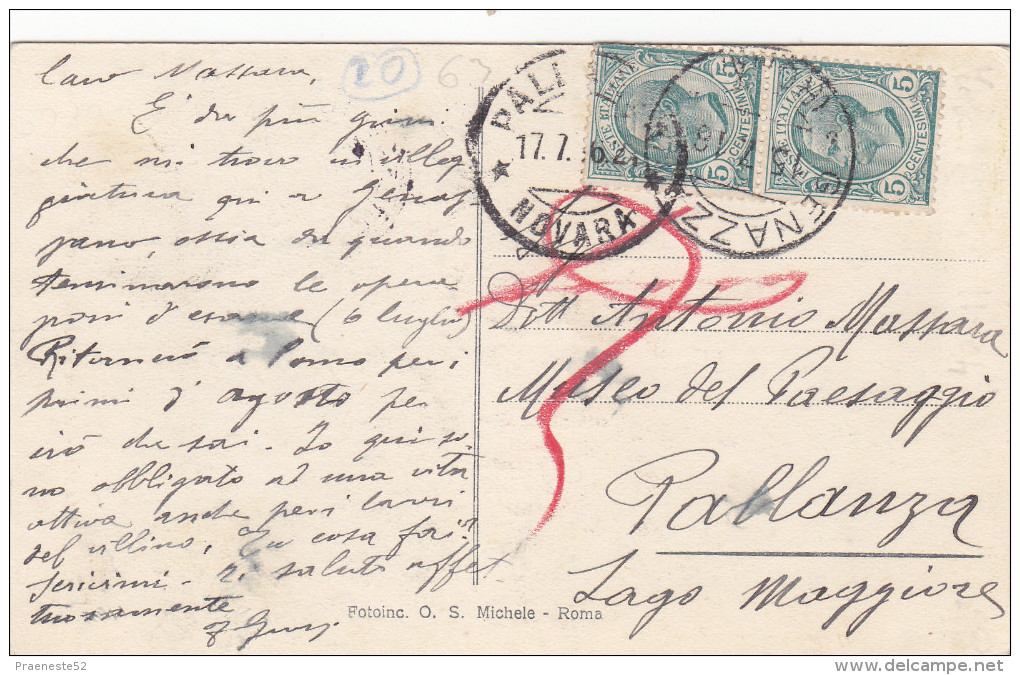 Caro Massara,
È da più giorni
che mi trovo in villeg
giatura qui a Genaz
zano, ossia da quando
terminarono le opera
zioni d'esame (6 luglio)
Ritornerò a Como per i
primi d'agosto per
ciò che sai. Io qui so
no obbligato ad una vita
attiva anche per i lavori
del villino. Tu cosa fai?
Scrivimi. Ti saluto affet
tuosamente
20
63
PALLANZA
17.7.
NOVARA
GENAZZANO
POSTE ITALIANE
CENTESIMI
5
5
POSTE ITALIANE
CENTESIMI
5
5
Dott Antonio Massara
Museo del Paesaggio
Pallanza
Lago Maggiore
Fotoinc. O. S. Michele - Roma
Praeneste52
www.delcampe.net